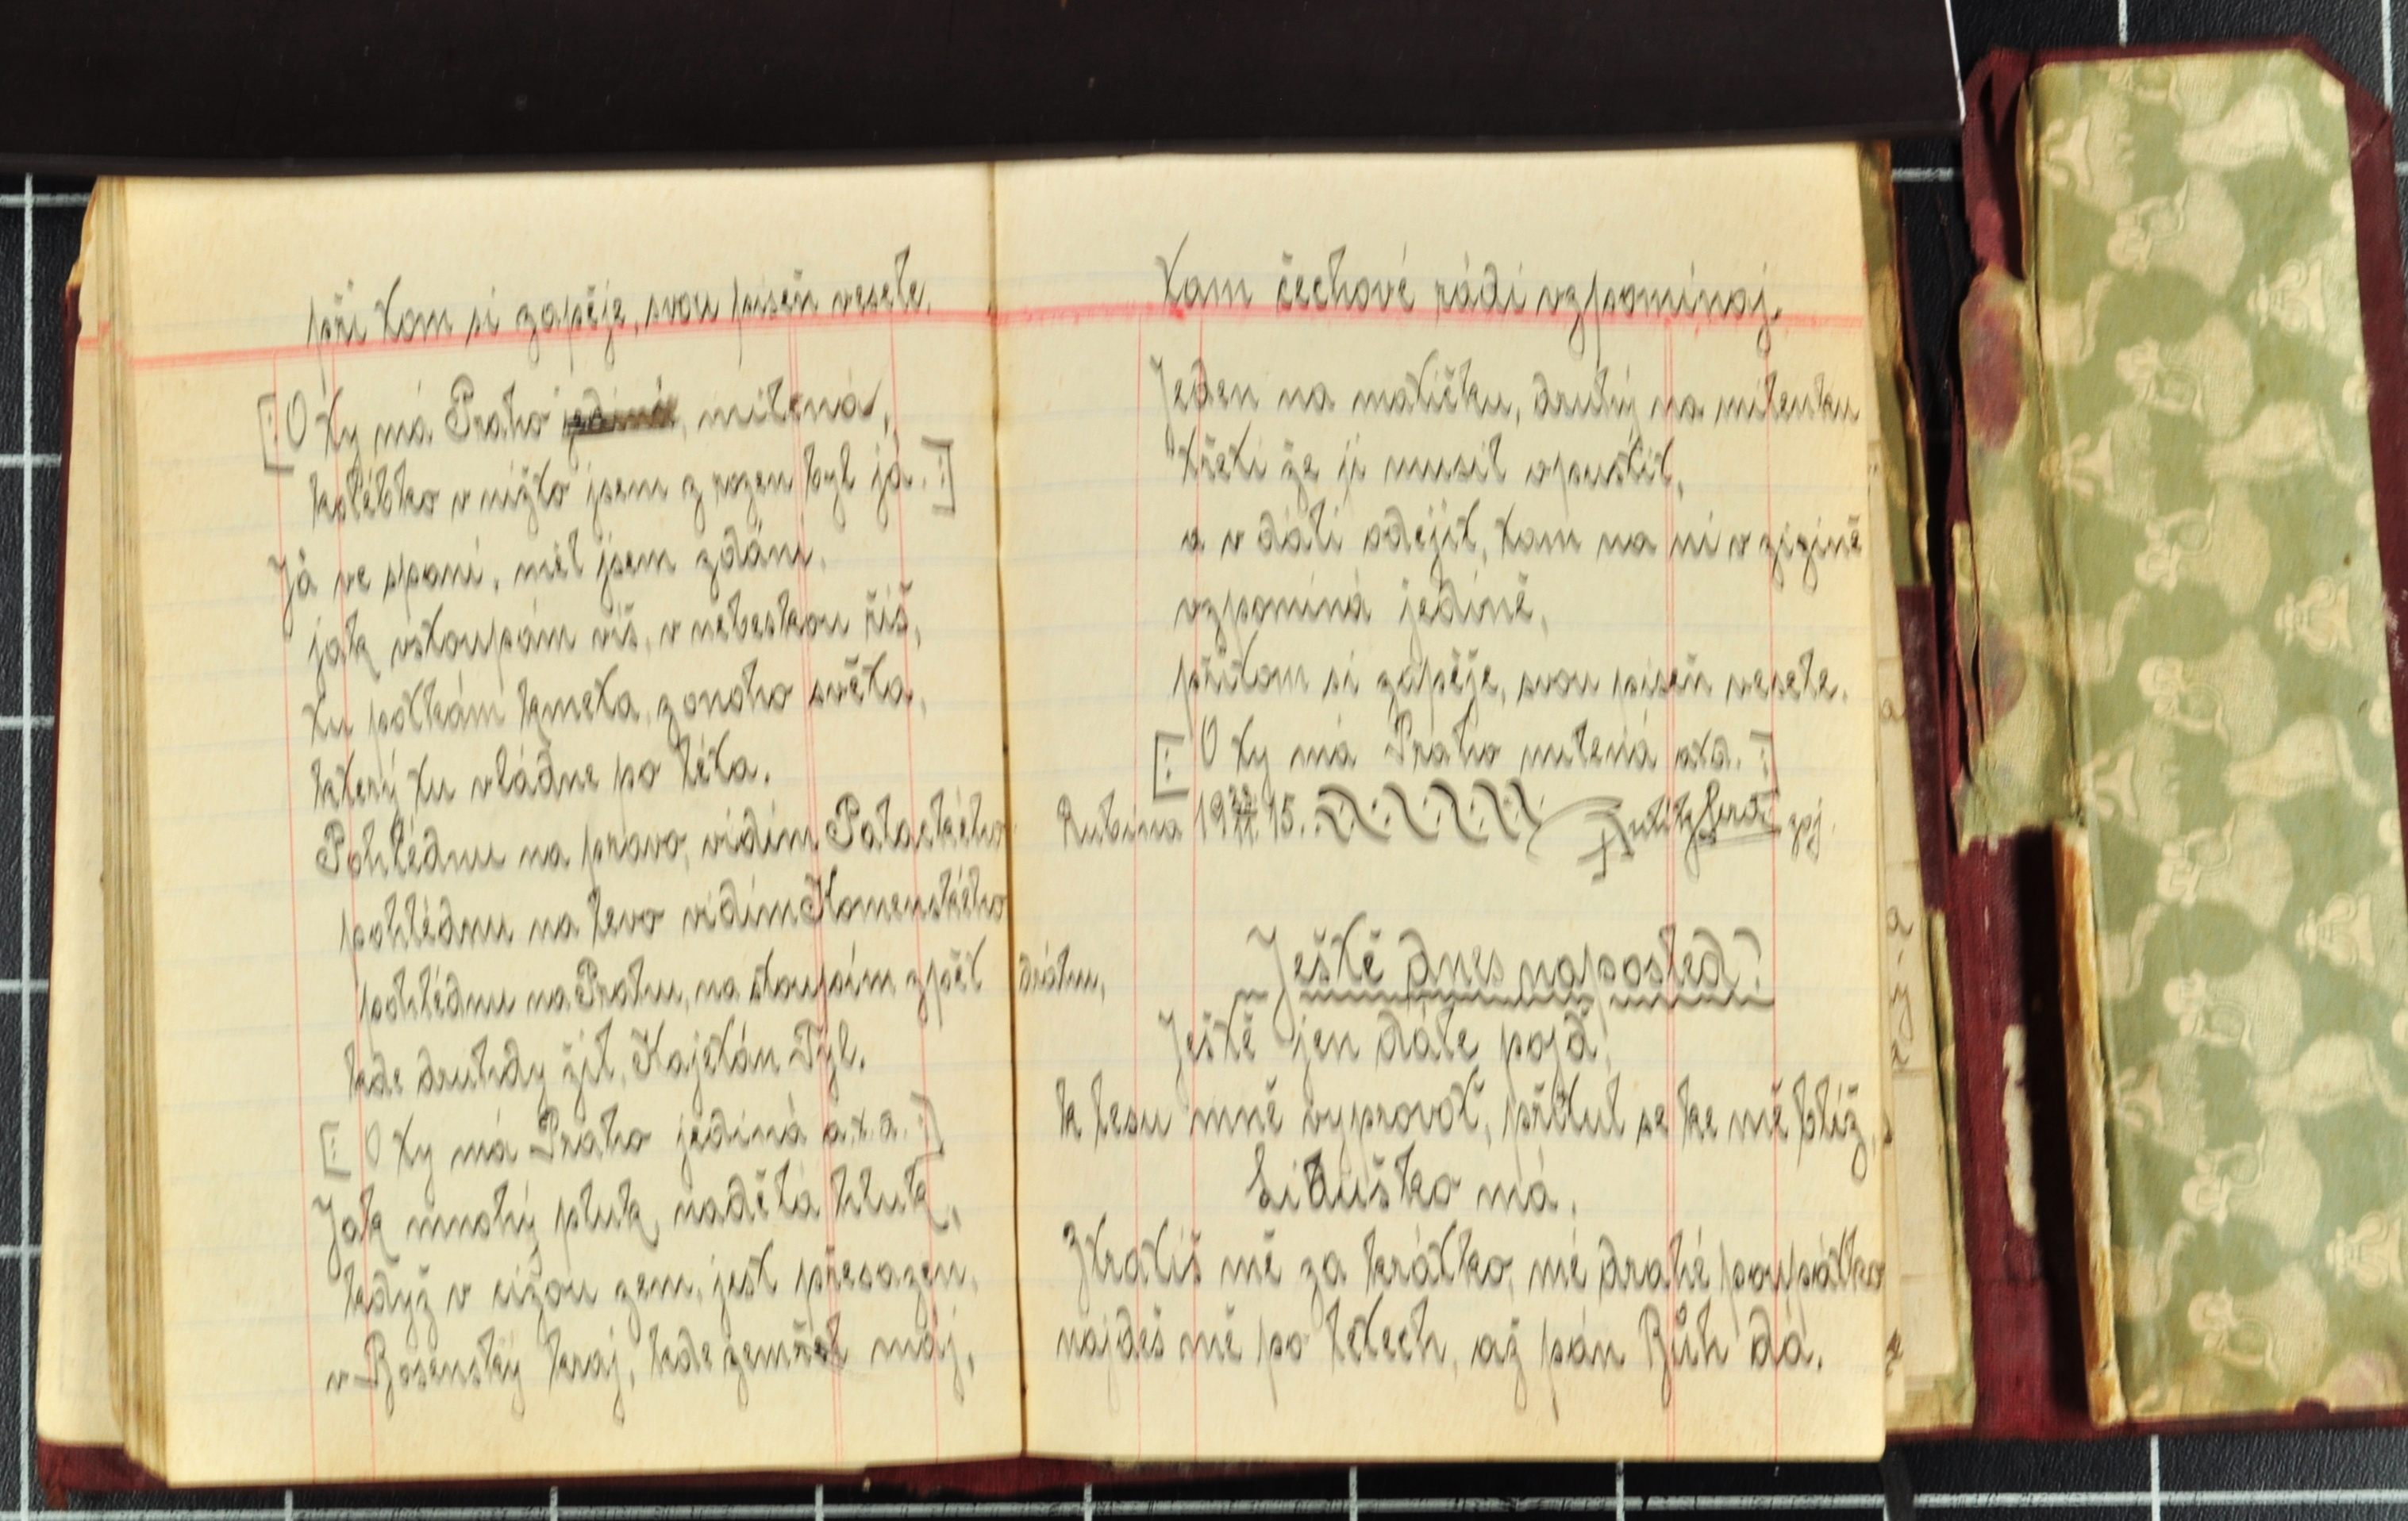 při tom si zapěje, svou píseň vesele.
[: O ty má Praho jediná, milená,
kolébko v nížto jsem z rozen byl já. :]
Já ve spaní, měl jsem zdání,
jak vstoupám víš, v nébeskou říš,
tu potkám kmeta, z onoho světa,
který tu vládne po léta.
Pohlédnu na pravo, vidím Palackého
pohlédnu na levo vidím Komenského
pohlédnu na Prahu, na stoupím zpět dráhu,
kde druhdy žil, Kajetán Tyl.
[: O ty má Praho jediná a.t.d. :]
Jak mnohý pluk, nadělá hluk,
když v cizou zem, jest přesazen,
v Bosenský kraj, kde zemřel máj,
tam čechové rádi vzpomínaj.
Jeden na matičku, druhý na milenku
třetí že ji musil opustit,
a v dáli odejít, tam na ni v zizině
vzpomíná jedině,
přitom si zapěje, svou píseň vesele.
[: O ty má Praho milená atd. :]
Rubina 19 15.
Ještě dnes naposled?
Ještě jen dále pojď,
k lesu mně vyprovoť, přitul se ke mě blíž,
Liduško má.
Ztratíš mě za krátko, mé drahé poupátko
najdeš mě po letech, až pán Bůh dá.